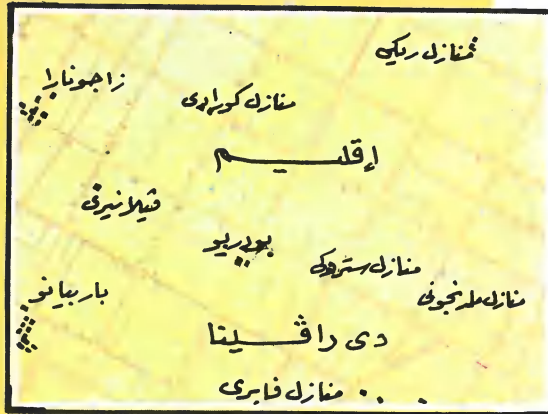 منازل ريكى
زاجونارا
منازل كورادى
إقليم
ڤيلانيرى
بودريو
منازل ستروكى
منازل طرنجونى
باربيانو
دى راڤينا
منازل فابرى